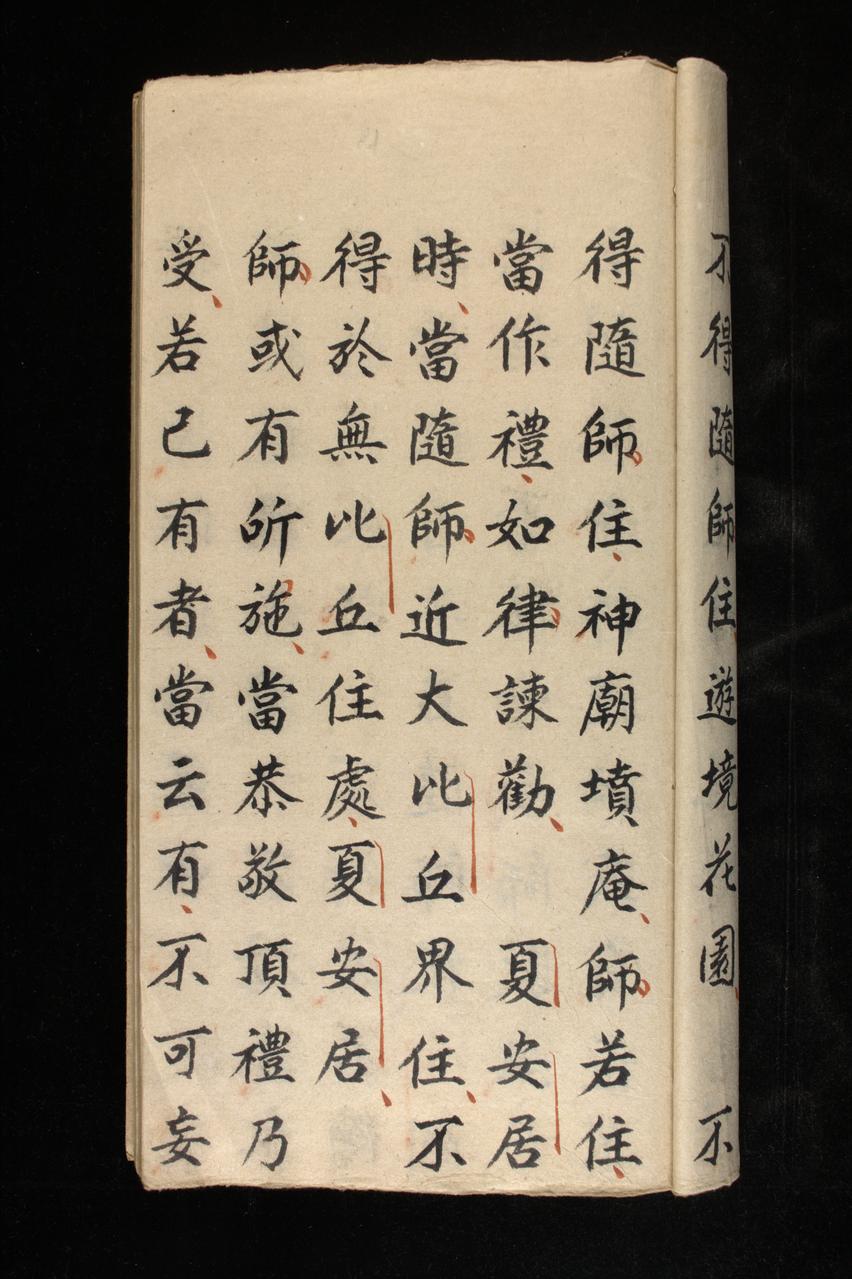 不得隨師住遊境花園 不
得隨師住神廟墳庵師若住
當作禮如律諫勸 夏安居
時當隨師近大比丘界住不
得於無比丘住處夏安居
師或有所施當恭敬頂禮乃
受若己有者當云有不可妄